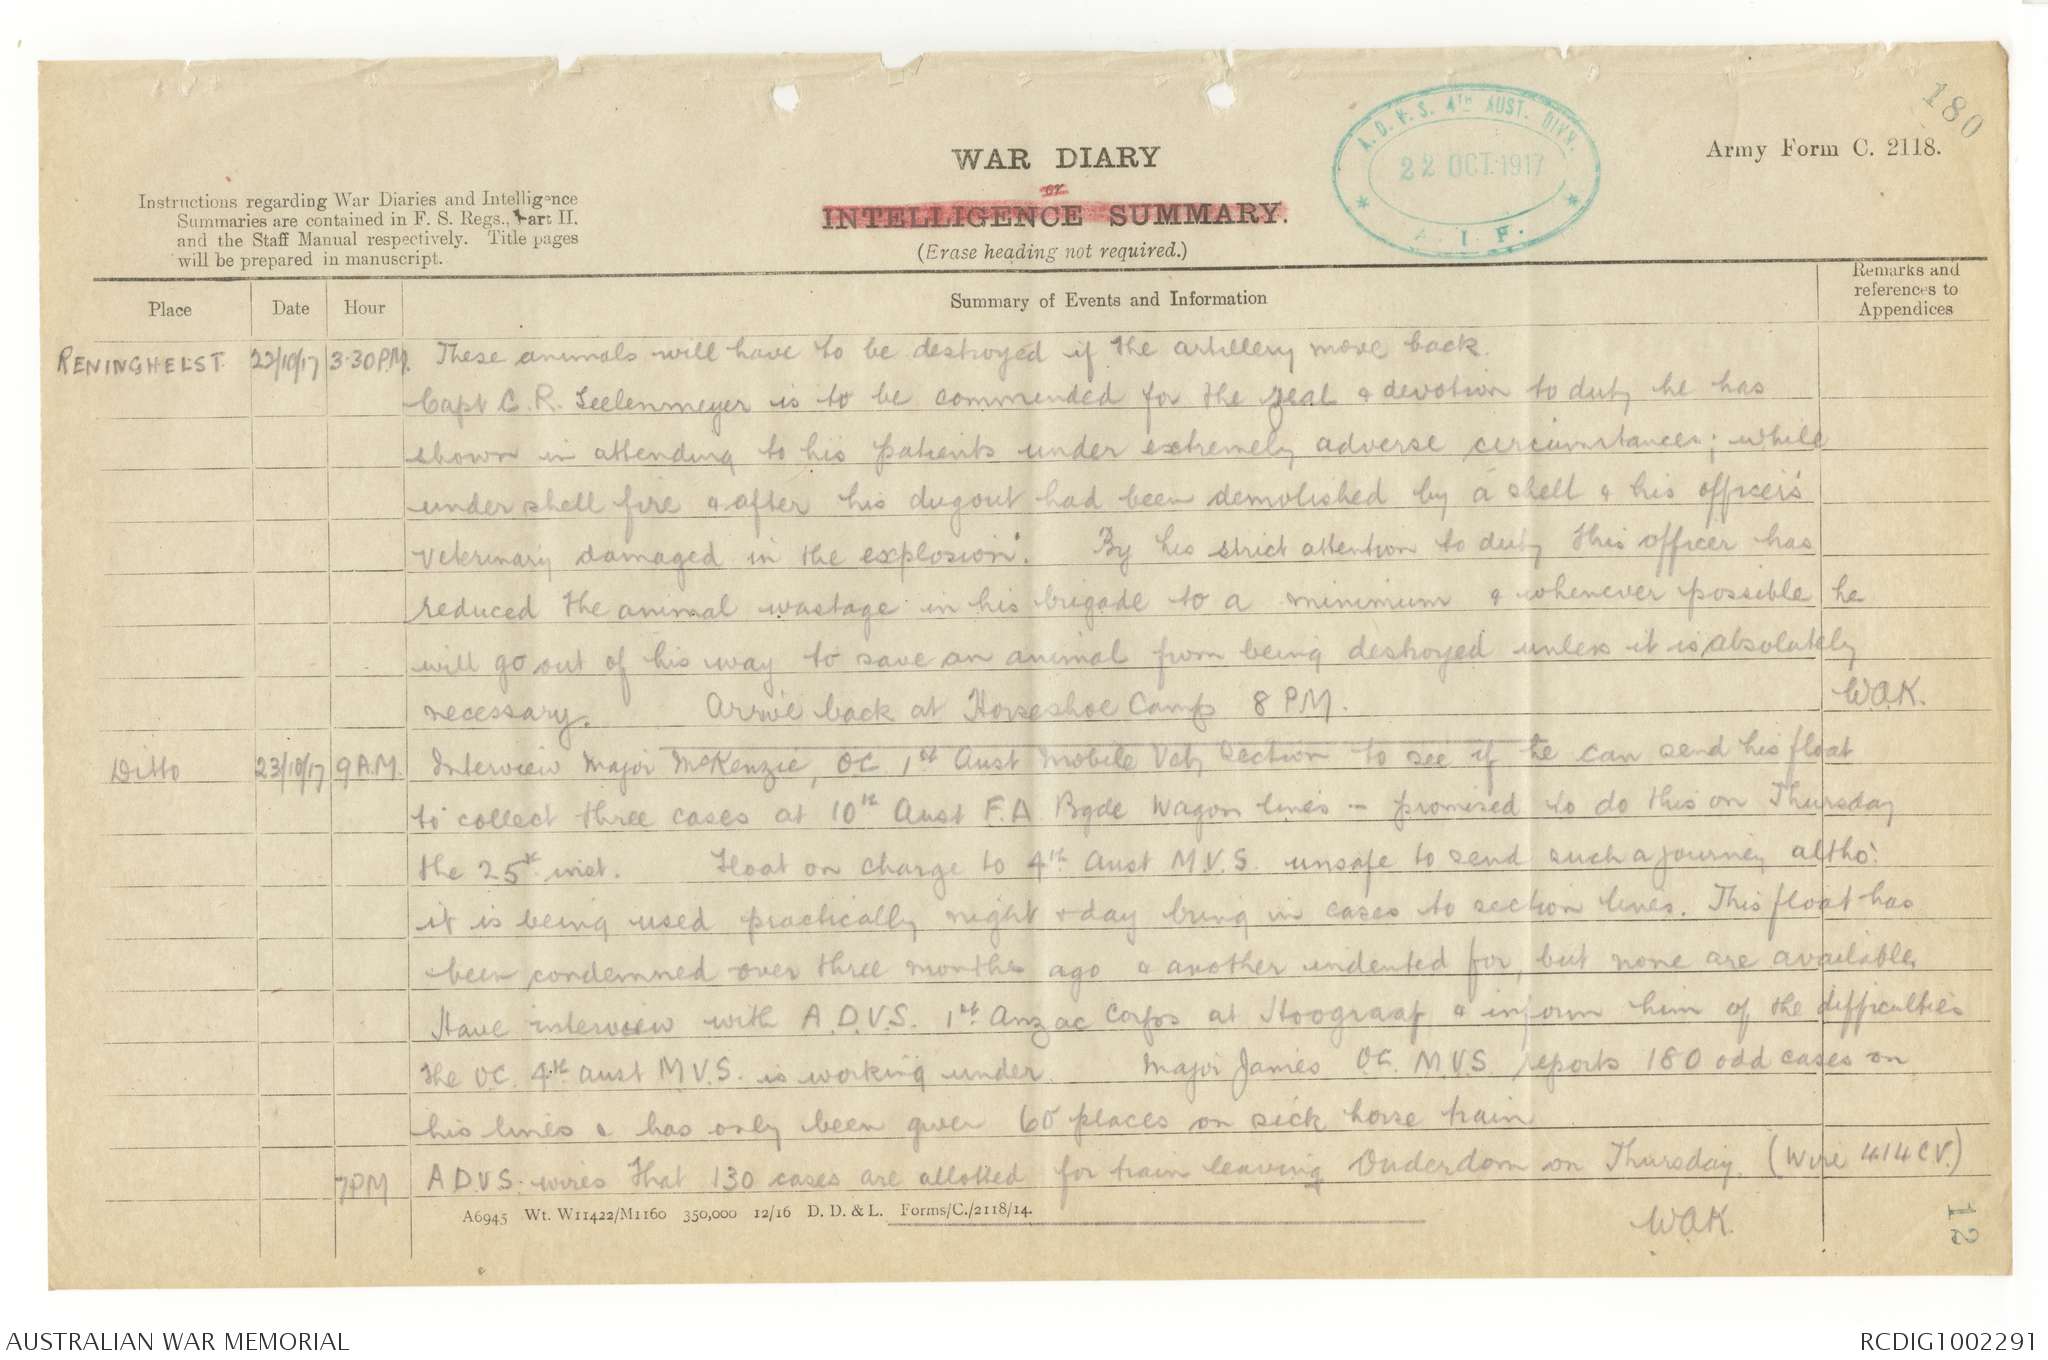 180
A.D.V.S. 4TH AUST. DIVN.
22 OCT. 1917
A. I. F.
Army Form C. 2118.
WAR DIARY
or
INTELLIGENCE SUMMARY.
(Erase heading not required.)
Instructions regarding War Diaries and Intelligence
Summaries are contained in F. S. Regs., Part II.
and the Staff Manual respectively. Title pages
will be prepared in manuscript.
Place Date Hour Summary of Events and Information Remarks and references to Appendices
RENINGHELST 22/10/17 3-30 P.M. These animals will have to be destroyed if the artillery move back.
Capt C. R. Seelenmeyer is to be commended for the zeal & devotion to duty he has
shown in attending to his patients under extremely adverse circumstances; while
under shell fire & after his dugout had been demolished by a shell & his officer's
Veterinary damaged in the explosion. By his strict attention to duty this officer has
reduced the animal wastage in his brigade to a minimum & whenever possible he
will go out of his way to save an animal from being destroyed unless it is absolutely
necessary. Arrive back at Horseshoe Camp 8 PM. W.A.K.
Ditto 23/10/17 9 A.M. Interview Major McKenzie, OC 1st Aust Mobile Vety Section to see if he can send his float
to collect three cases at 10th Aust F.A. Bgde Wagon lines - promised to do this on Thursday
the 25th inst. Float on charge to 4th Aust M.V.S. unsafe to send such a journey altho'
it is being used practically night & day bring in cases to section lines. This float has
been condemned over three months ago & another indented for, but none are available.
Have interview with A.D.V.S. 1st Anzac Corps at Hoograaf & inform him of the difficulties
the OC. 4th Aust M.V.S. is working under. Major James OC. M.V.S reports 180 odd cases on
his lines & has only been given 60 places on sick horse train
7PM A.D.V.S. wires that 130 cases are allotted for train leaving Ouderdom on Thursday. (Wire 414 CV.)
A6945 Wt. W11422/M1160 350,000 12/16 D. D. & L. Forms/C./2118/14.
W.A.K.
12
AUSTRALIAN WAR MEMORIAL
RCDIG1002291